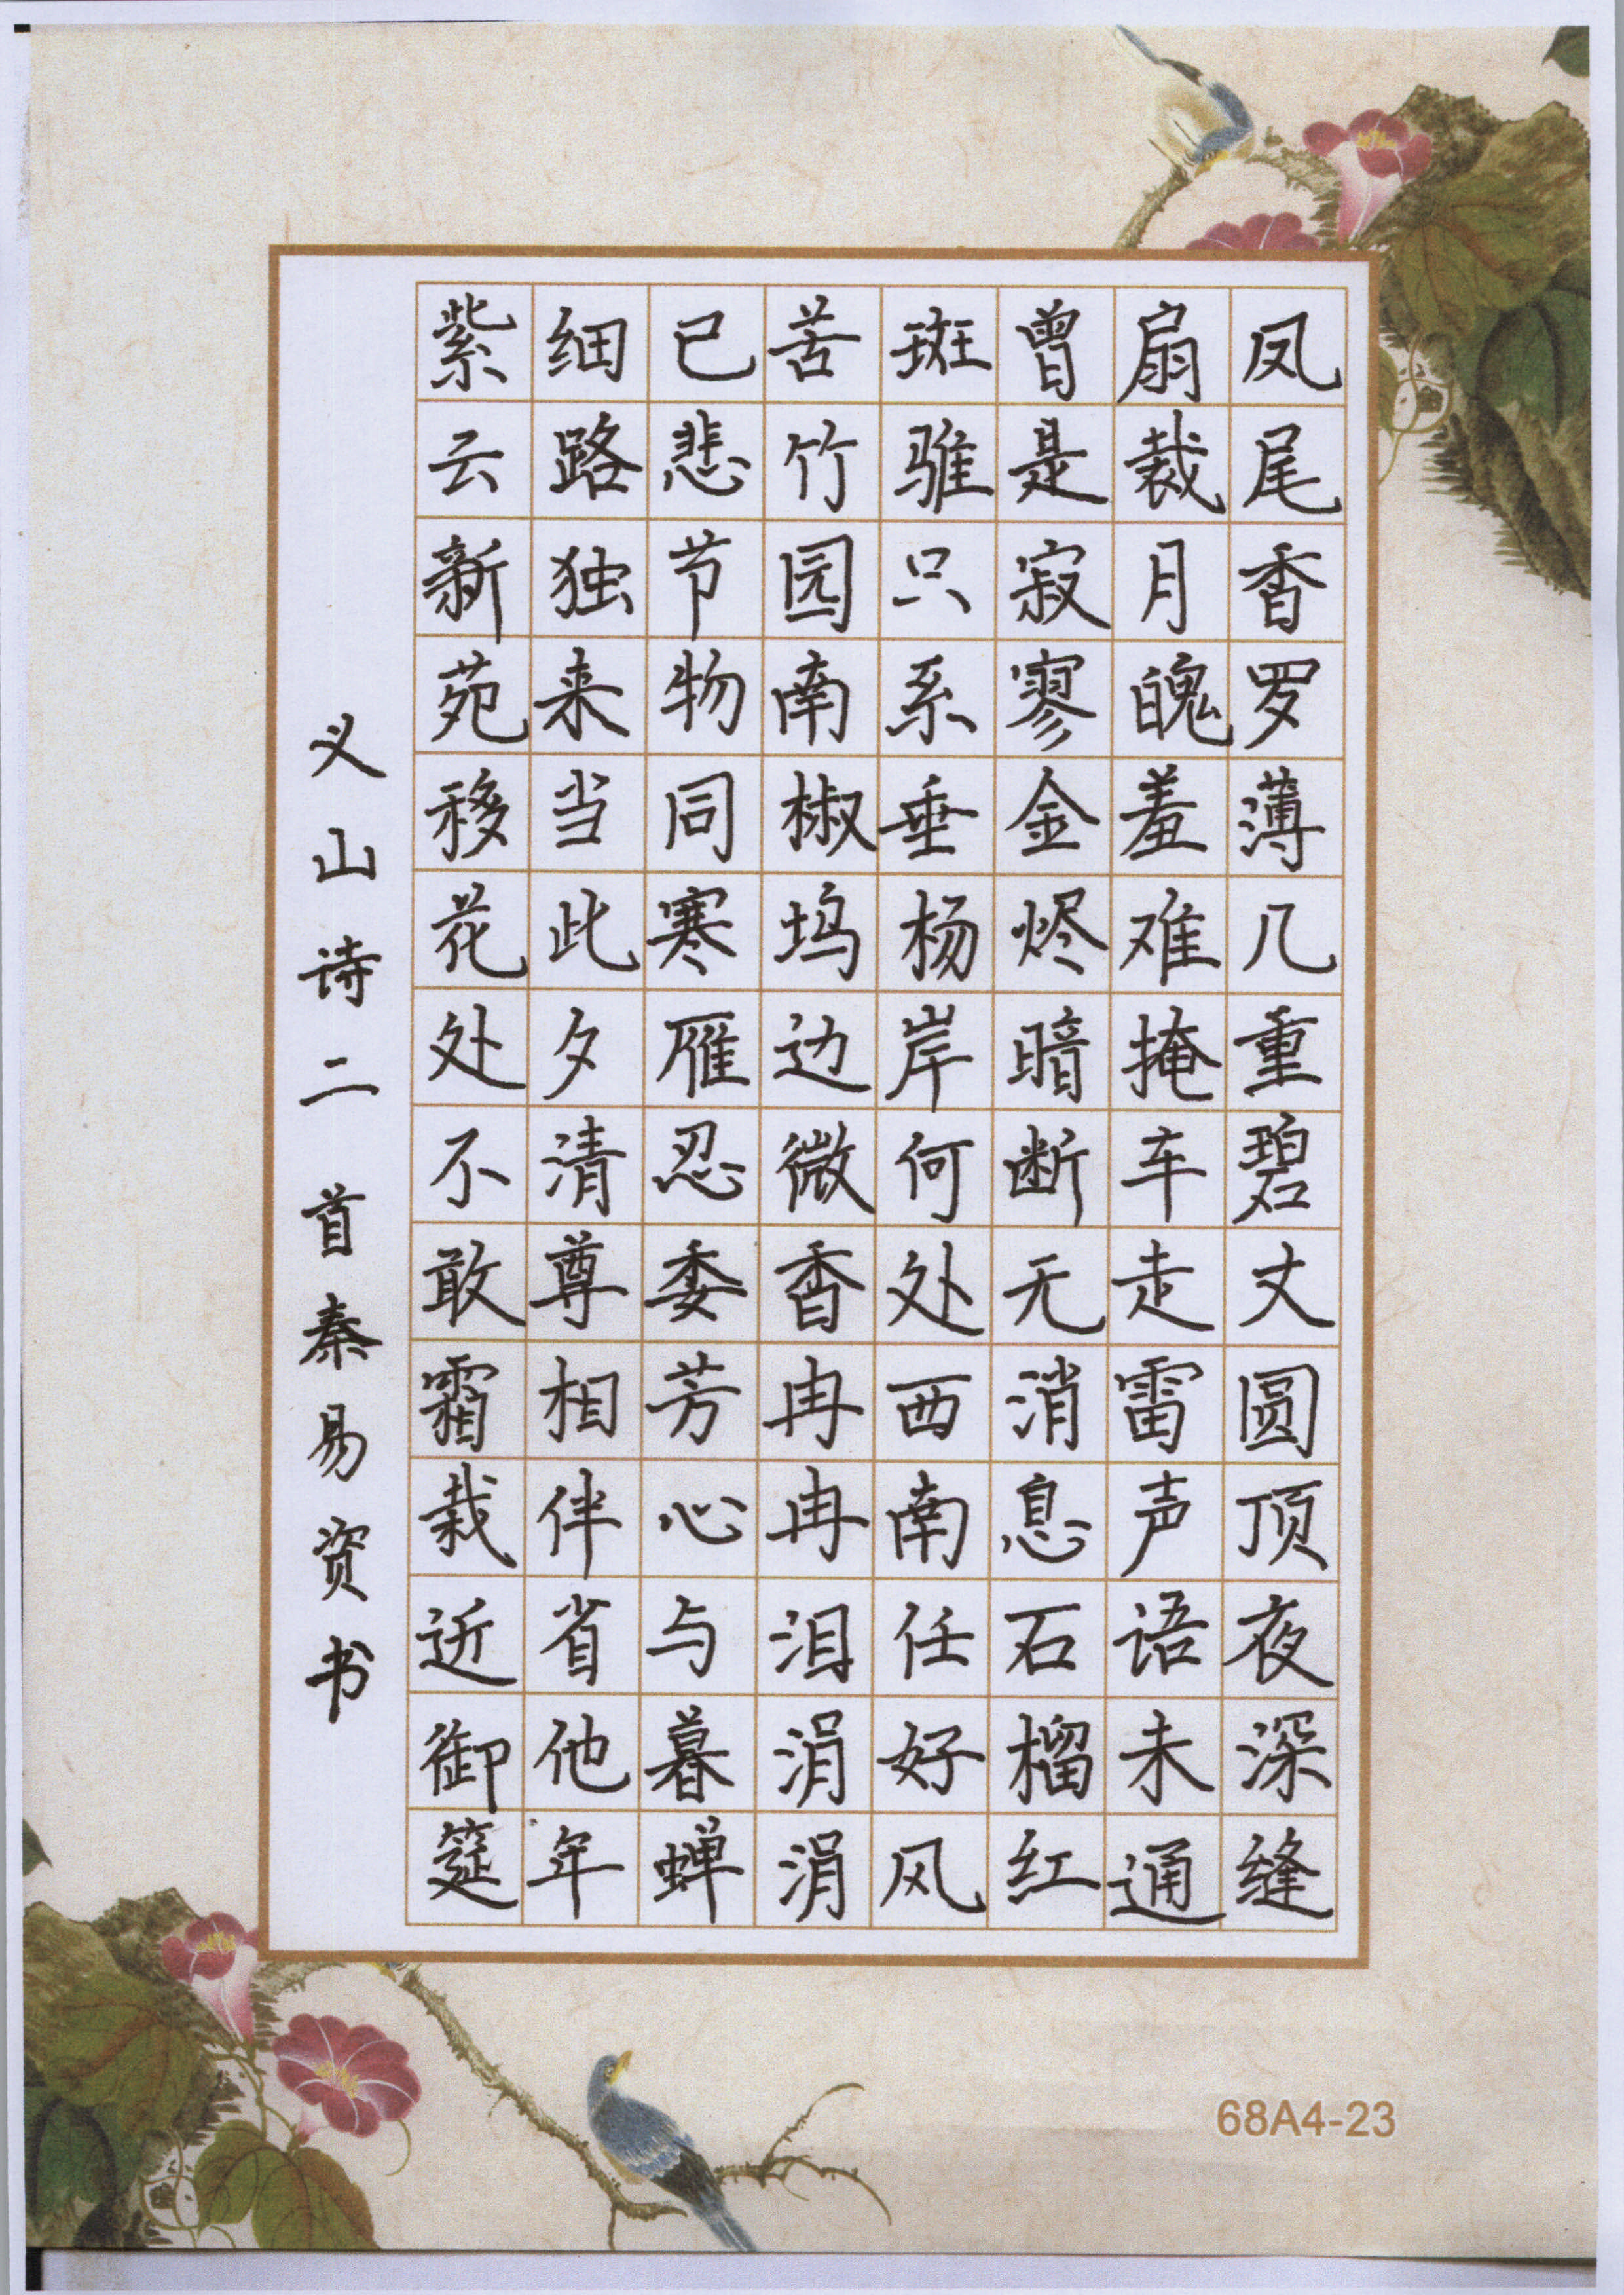 凤尾香罗薄几重碧丈圆顶夜深缝
扇裁月魄羞难掩车走雷声语未通
曾是寂寥金烬暗断无消息石榴红
斑骓只系垂杨岸何处西南任好风
苦竹园南椒坞边微香冉冉泪涓涓
已悲节物同寒雁忍委芳心与暮蝉
细路独来当此夕清尊相伴省他年
紫云新苑移花处不敢霜栽近御筵
义山诗二首秦易资书
68A4-23